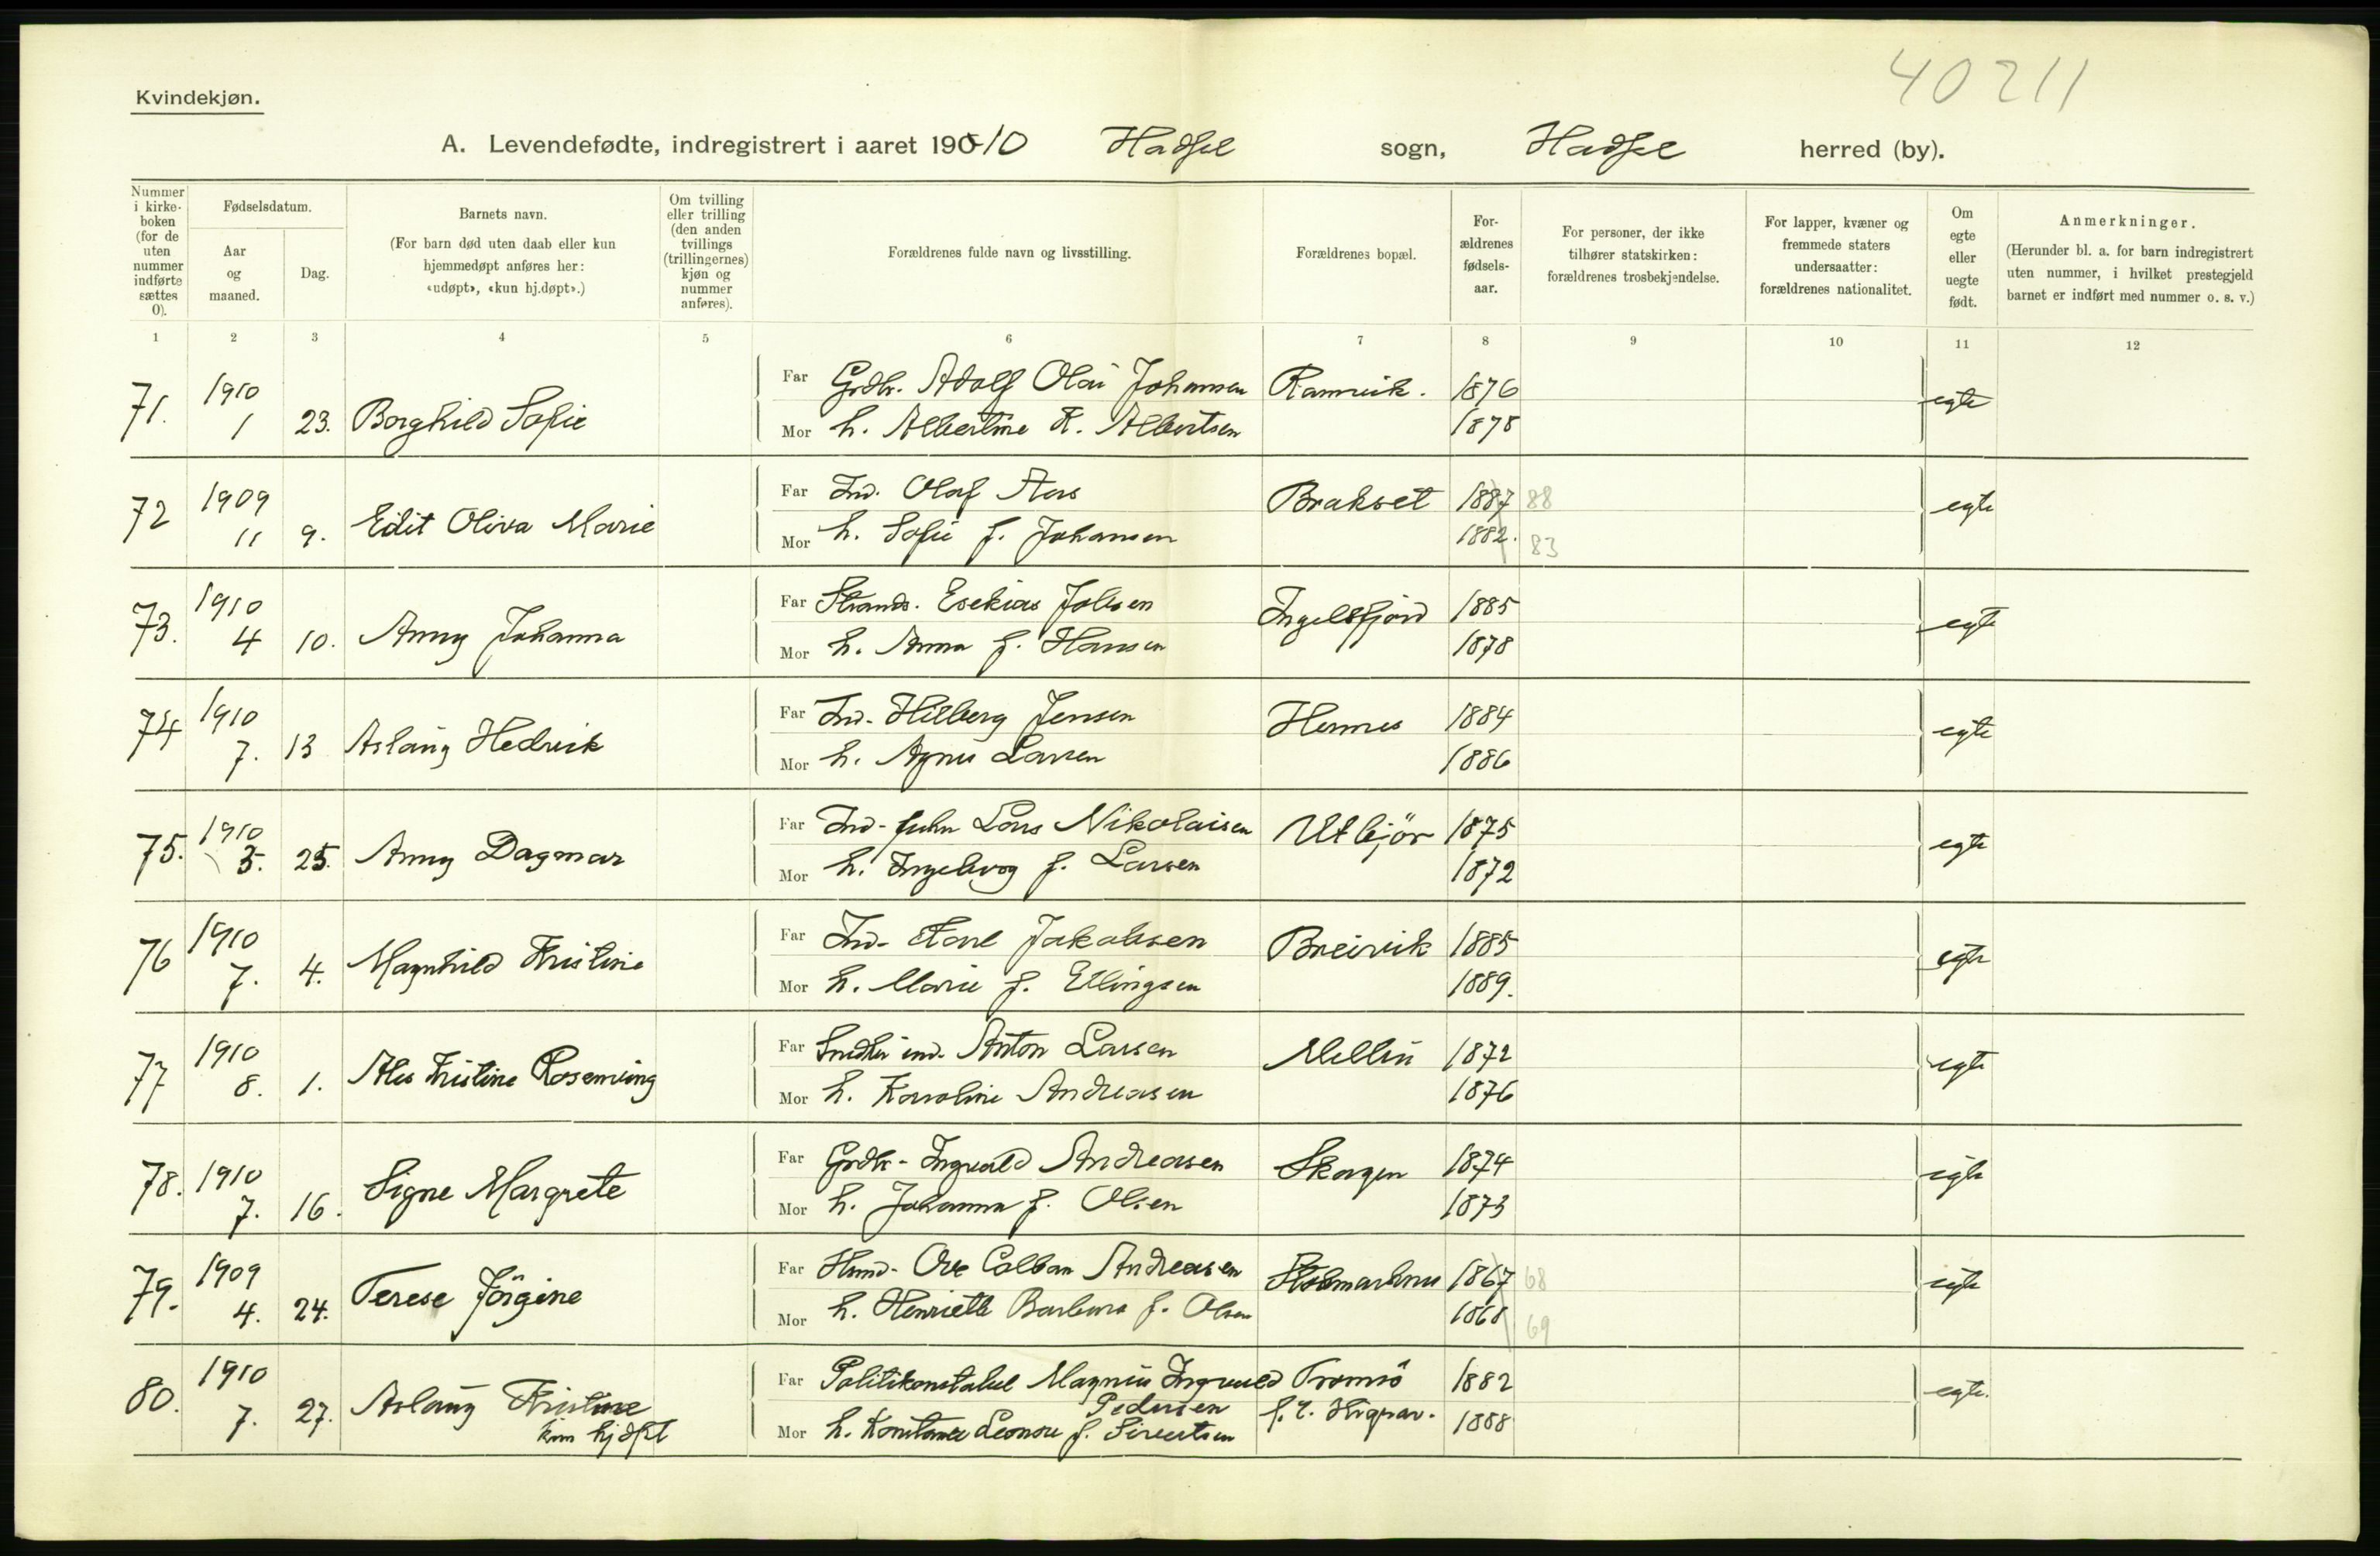 40211
Kvindekjøn.
A. Levendefødte, indregistrert i aaret 190-10 Hadsel sogn, Hadsel herred (by).
Nummer i kirkeboken (for de uten nummer indførte sættes 0).
Fødselsdatum.
Aar og maaned.
Dag.
Barnets navn.
(For barn død uten daab eller kun hjemmedøpt anføres her: «udøpt», «kun hj.døpt».)
Om tvilling eller trilling (den anden tvillings (trillingernes) kjøn og nummer anføres).
Forældrenes fulde navn og livsstilling.
Forældrenes bopæl.
Forældrenes fødselsaar.
For personer, der ikke tilhører statskirken: forældrenes trosbekjendelse.
For lapper, kvæner og fremmede staters undersaatter: forældrenes nationalitet.
Om egte eller uegte født.
Anmerkninger.
(Herunder bl. a. for barn indregistrert uten nummer, i hvilket prestegjeld barnet er indført med nummer o. s. v.)
1 2 3 4 5 6 7 8 9 10 11 12
71. 1910 1 23. Borghild Sofie
Far Grdbr. Adolf Olai Johansen Ramvik. 1876 egte
Mor h. Albertine K. Albertsen 1878
72 1909 11 9. Edit Oliva Marie
Far Ind. Olaf Aas Brakset 1887 88 egte
Mor h. Sofie f. Johansen 1882. 83
73. 1910 4 10. Anny Johanna
Far Strands. Esekias Jolsen Ingelsfjord 1885 egte
Mor h. Anna f. Hansen 1878
74 1910 7. 13 Aslaug Hedvik
Far Ind. Hilberg Jensen Hennes 1884 egte
Mor h. Agnes Larsen 1886
75. 1910 5. 25. Anny Dagmar
Far Ind- John Lars Nikolaisen Utbjör 1875 egte
Mor h. Ingeborg f. Larsen 1872
76 1910 7. 4. Magnhild Kristine
Far Ind- Karl Jakobsen Breivik 1885 egte
Mor h. Marie f. Ellingsen 1889.
77 1910 8. 1. Kristine
Far ind. Anton Larsen 1872 egte
Mor h. Karoline Andreasen 1876
78. 1910 7. 16. Signe Margrete
Far Grdbr- Ingvald Andreasen Skagen 1874 egte
Mor h. Johanna f. Olsen 1873
79. 1909 4. 24. Terese Jörgine
Far Ove Colban Andreasen 1867 68 egte
Mor h. Henriette Barbara f. Olsen 1868 69
80. 1910 7. 27. Aslaug Kristine
kun hjdøpt
Far Politikonstabel Magnus Ingvald Tromsö 1882 egte.
Pedersen
Mor h. Konstance Leonore f. Sivertsen 1888